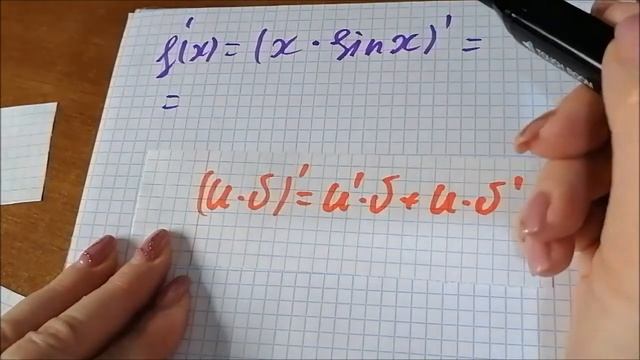 f'(x) = (x · sin x)' =
=
(u · v)' = u' · v + u · v'